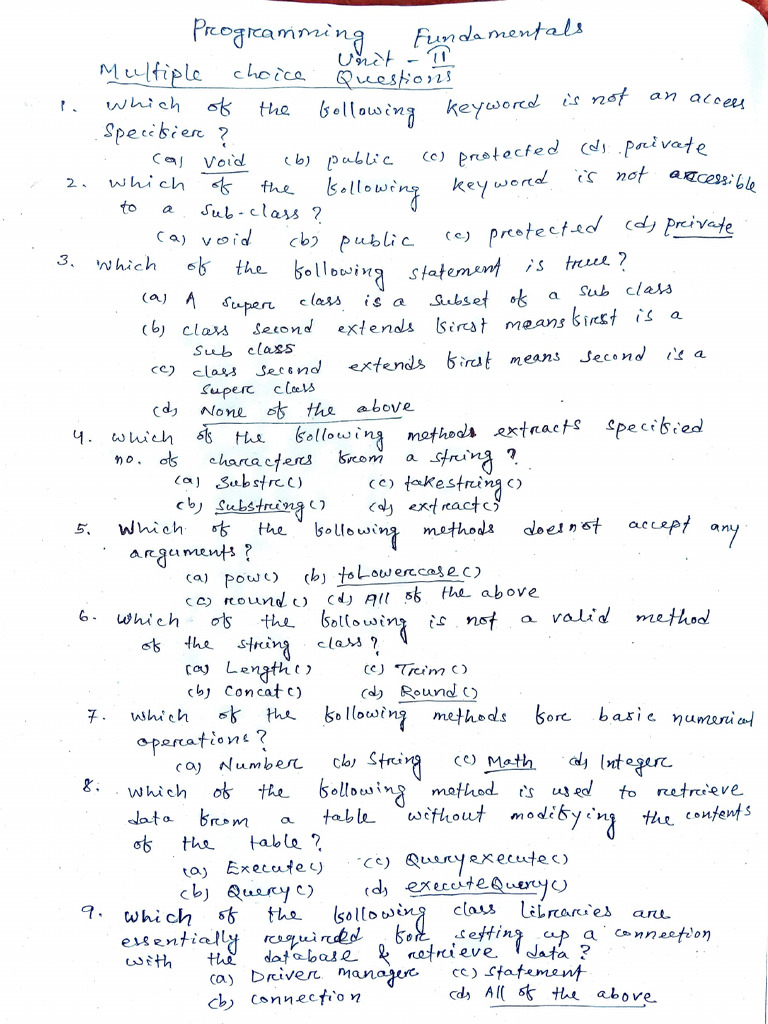 Programming Fundamentals
Unit - II
Multiple choice Questions
1. Which of the following keyword is not an access
specifier?
(a) void (b) public (c) protected (d) private
2. Which of the following keyword is not accessible
to a sub-class?
(a) void (b) public (c) protected (d) private
3. Which of the following statement is true?
(a) A super class is a subset of a sub class
(b) class second extends first means first is a
sub class
(c) class second extends first means second is a
super class
(d) None of the above
4. Which of the following methods extracts specified
no. of characters from a string?
(a) Substr() (c) takestring()
(b) substring() (d) extract()
5. Which of the following methods doesnot accept any
arguments?
(a) pow() (b) toLowercase()
(c) round() (d) All of the above
6. Which of the following is not a valid method
of the string class?
(a) Length() (c) Trim()
(b) Concat() (d) Round()
7. Which of the following methods for basic numerical
operations?
(a) Number (b) String (c) Math (d) Integer
8. Which of the following method is used to retrieve
data from a table without modifying the contents
of the table?
(a) Execute() (c) Queryexecute()
(b) Query() (d) executeQuery()
9. Which of the following class libraries are
essentially required for setting up a connection
with the database & retrieve data?
(a) Driver manager (c) statement
(b) connection (d) All of the above